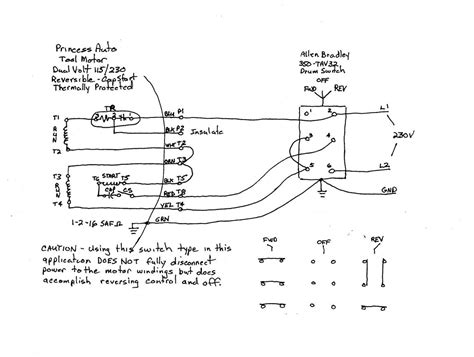 Princess Auto
Tool Motor
Dual Volt 115/230
Reversible - Cap Start
Thermally Protected
Allen Bradley
350-TAV32
Drum Switch
OFF
FWD
REV
TP
T1
BLU P1
BLK P2
Insulate
WHT T2
ORN T3
RUN
T2
T3
RUN
T4
START
T6
T5
Cap
CS
BLK T5
RED T8
YEL T4
GRN
1
2
3
4
5
6
L1
230V
L2
GND
1-2-16 SAF Ω
CAUTION - Using this switch type in this
application DOES NOT fully disconnect
power to the motor windings, but does
accomplish reversing control and off.
FWD
OFF
REV